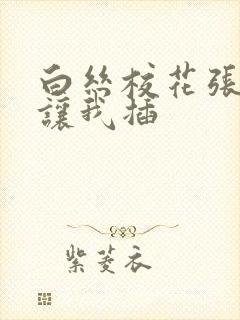 白丝校花張
讓我插
紫菱衣